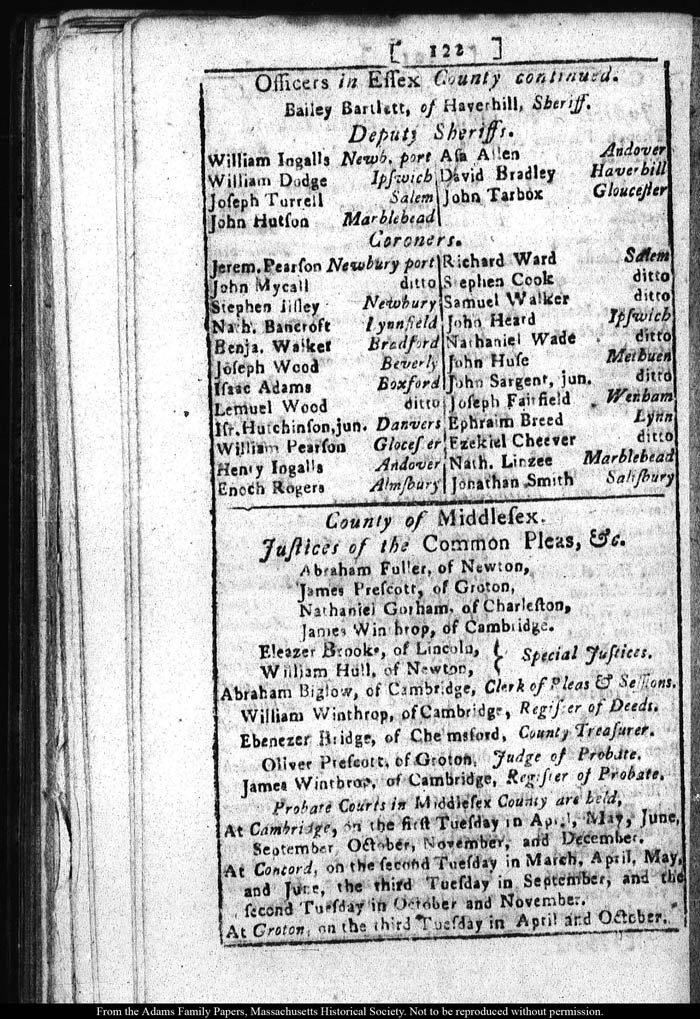 [ 122 ]
Officers in Eſſex County continued.
Bailey Bartlett, of Haverhill, Sheriff.
Deputy Sheriffs.
William Ingalls Newb. port Aſa Allen Andover
William Dodge Ipſwich David Bradley Haverhill
Joſeph Turrell Salem John Tarbox Glouceſter
John Hutſon Marblehead
Coroners.
Jerem. Pearſon Newbury port Richard Ward Salem
John Mycall ditto Stephen Cook ditto
Stephen Ilſley Newbury Samuel Walker ditto
Nath. Bancroft Lynnfield John Heard Ipſwich
Benja. Walker Bradford Nathaniel Wade ditto
Joſeph Wood Beverly John Huſe Methuen
Iſaac Adams Boxford John Sargent, jun. ditto
Lemuel Wood ditto Joſeph Fairfield Wenham
Iſr. Hutchinſon, jun. Danvers Ephraim Breed Lynn
William Pearſon Gloceſ er Ezekiel Cheever ditto
Henry Ingalls Andover Nath. Linzee Marblehead
Enoch Rogers Almſbury Jonathan Smith Saliſbury
County of Middleſex.
Juſtices of the Common Pleas, &c.
Abraham Fuller, of Newton,
James Preſcott, of Groton,
Nathaniel Gorham, of Charleſton,
James Winthrop, of Cambridge.
Eleazer Brooks, of Lincoln, { Special Juſtices.
William Hull, of Newton,
Abraham Biglow, of Cambridge, Clerk of Pleas & Seſſions.
William Winthrop, of Cambridge, Regiſter of Deeds.
Ebenezer Bridge, of Chelmsford, County Treaſurer.
Oliver Preſcott, of Groton, Judge of Probate.
James Winthrop, of Cambridge, Regiſter of Probate.
Probate Courts in Middleſex County are held,
At Cambridge, on the firſt Tueſday in April, May, June,
September October, November, and December.
At Concord, on the ſecond Tueſday in March, April, May,
and June, the third Tueſday in September, and the
ſecond Tueſday in October and November.
At Groton, on the third Tueſday in April and October.
From the Adams Family Papers, Massachusetts Historical Society. Not to be reproduced without permission.